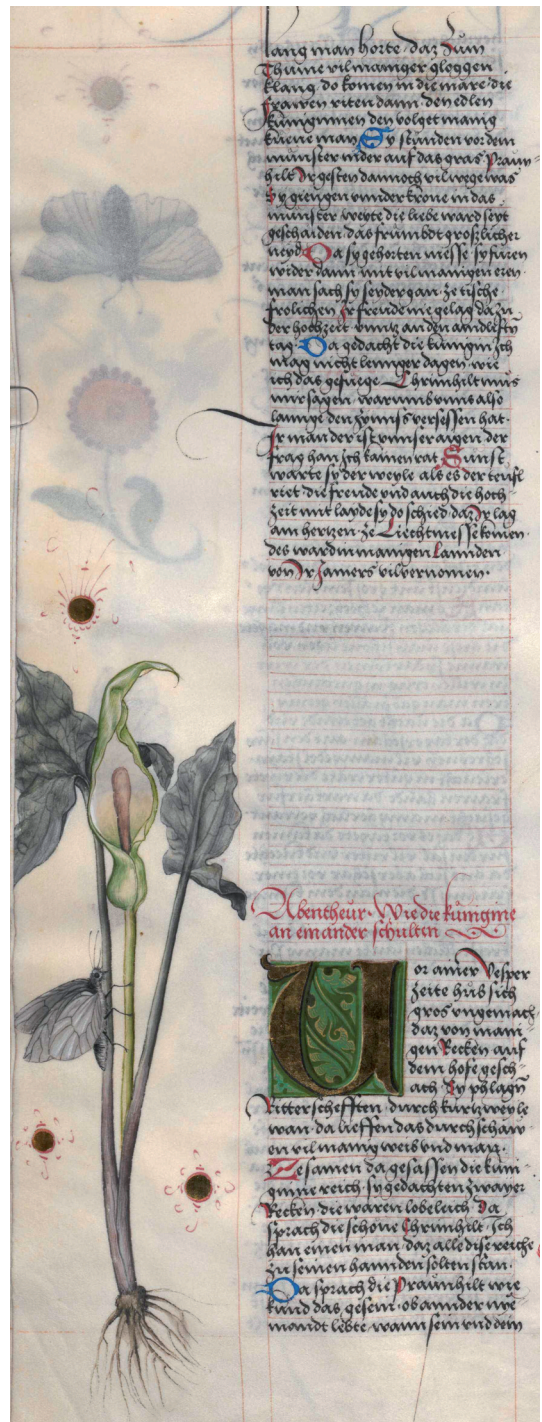 lang man horte · daz zum
Thume vil maniger gloggen
klang · do komen in die mare · die
frawen riten dann · den edlen
kuniginnen den volget manig
kuene man Sy stunden vor dem
münster nider auf das gras Praun-
hilt Ir gesten dannoch vil wege was
Sy giengen vnnder krone in das
münster weyte die liebe ward seyt
geschaiden · das frumbdt groszlicher
neyd Da sy gehorten messe sy füren
wider dann mit vil manigen eren ·
man sach sy seyder gan · ze tische
frolichen Ir freude nie gelag da zu
der hochzeit vnntz an den aindlefftn
tag · Da gedacht die kunigin Ich
mag nicht lennger dagen · wie
ich das gefuege Chrimhilt mus
mir sagen · warumb vnns also
lannge den zynnss versessen hat ·
Ir man der ist vnnser aigen der
frag han ich kainen rat · Sunst
warte sy der weyle als es der teufl
riet die freude vnd auch die hoch-
zeit mit layde sy do schied daz Ir lag
am hertzen · ze Liechtmesse komen ·
des ward in manigen lannden
von Ir Jamers vil vernomen ·
Abentheur · Wie die kunigine
an einander schulten
Vor ainer Vesper
zeite hub sich
gros vngemach
daz von mani
gen Recken auf
dem hofe gesch-
ach Sy phlagn
Ritterschefften · durch kurtzweyle
wan · da lieffen das durch schaw-
en vil manig weib vnd man ·
Zesamen da gesassen die kuni-
ginne reich · sy gedachten zwayer
Recken die waren lobeleich · Da
sprach die schöne Chrimhilt · Ich
han einen man · daz alle dise reiche
zu seinen hannden solten stan ·
Da sprach die Praunhilt wie
kund das gesein · ob annder nye
mandt lebte · wann sein vnd dein